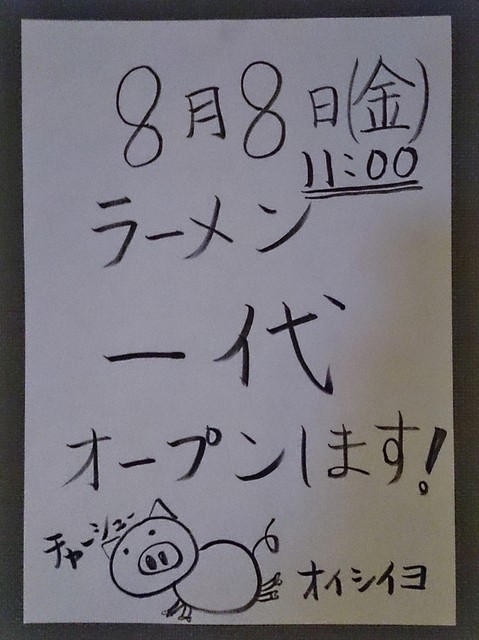 8月8日(金)
11:00
ラーメン
一代
オープンします!
チャーシュー
オイシイヨ